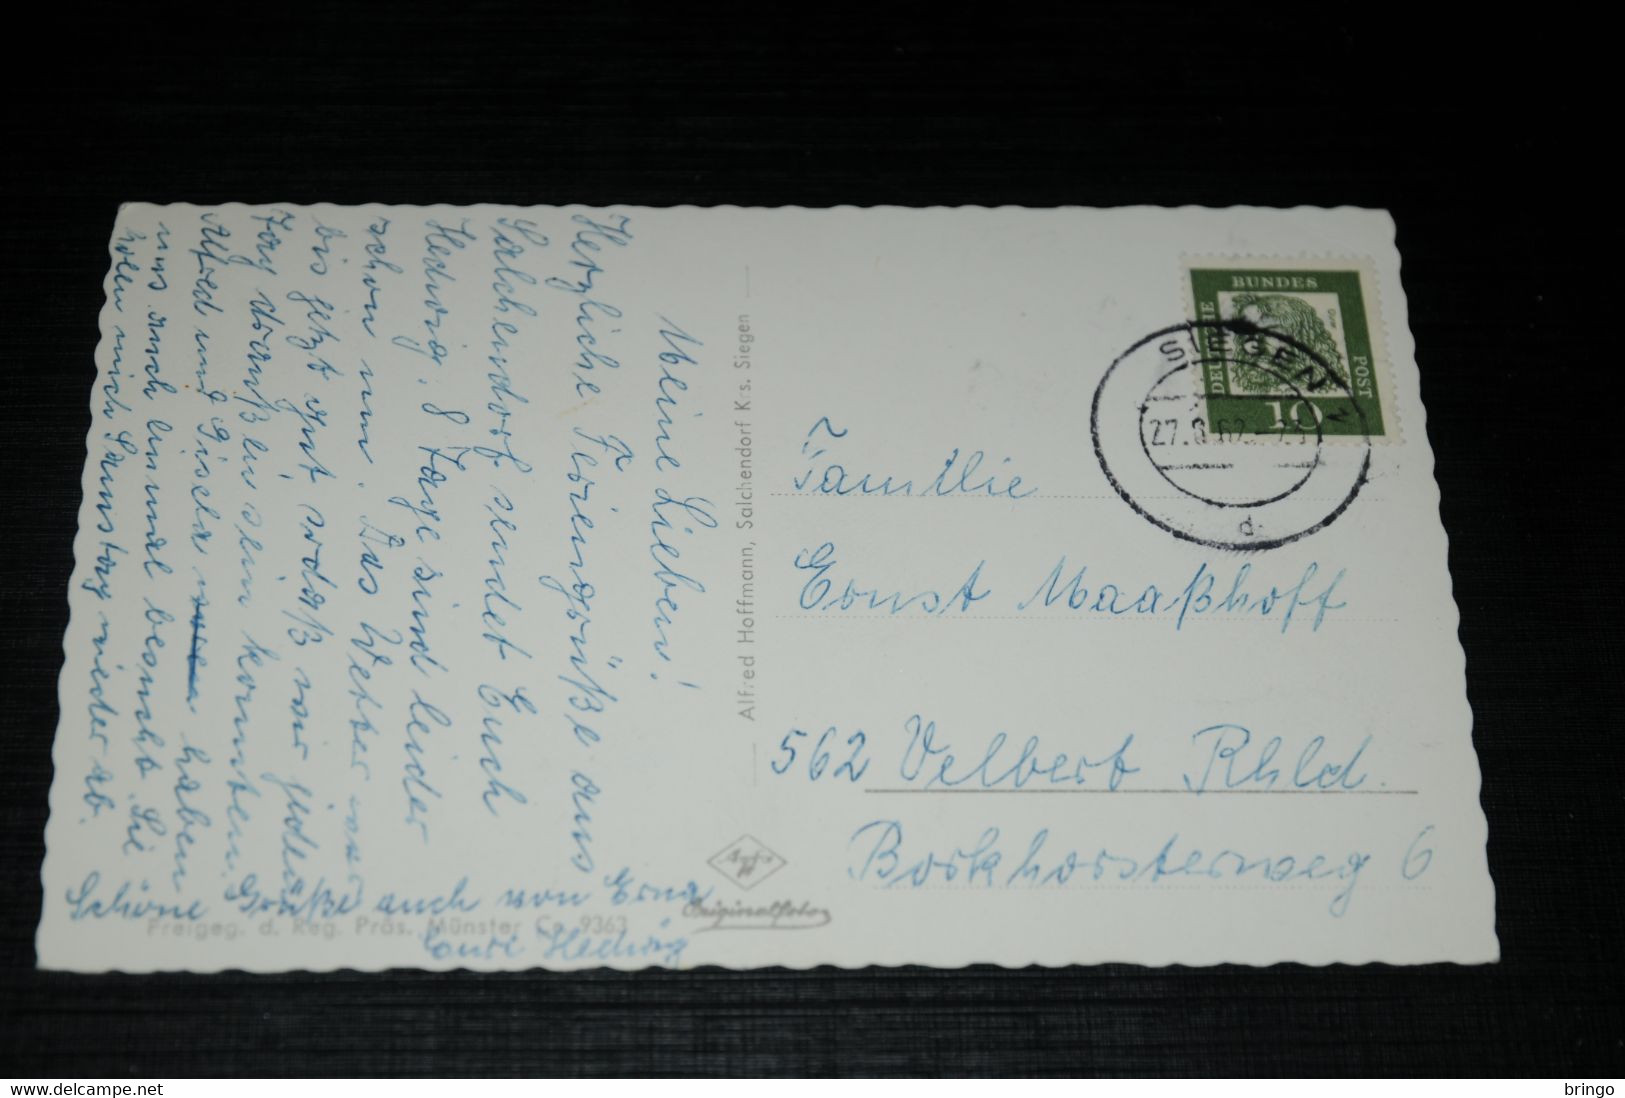 Meine Lieben!
Herzliche Feriengrüße aus
Salchendorf sendet Euch
Hedwig. 8 Tage sind leider
schon um. Das Wetter war
bis jetzt gut sodaß wir jeden
Tag draußen sein konnten.
Alfred und Gisela haben
uns auch einmal besucht. Sie
holen mich Samstag wieder ab.
Schöne Grüße auch von Erna
Eure Hedwig
Freigeg. d. Reg. Präs. Münster Co 9363
Alfred Hoffmann, Salchendorf Krs. Siegen
Agfa
Originalfoto
DEUTSCHE
BUNDES
POST
10
SIEGEN 1
27.8.62-23
d
Familie
Ernst Maaßhoff
562 Velbert Rhld.
Borkhorsterweg 6
bringo